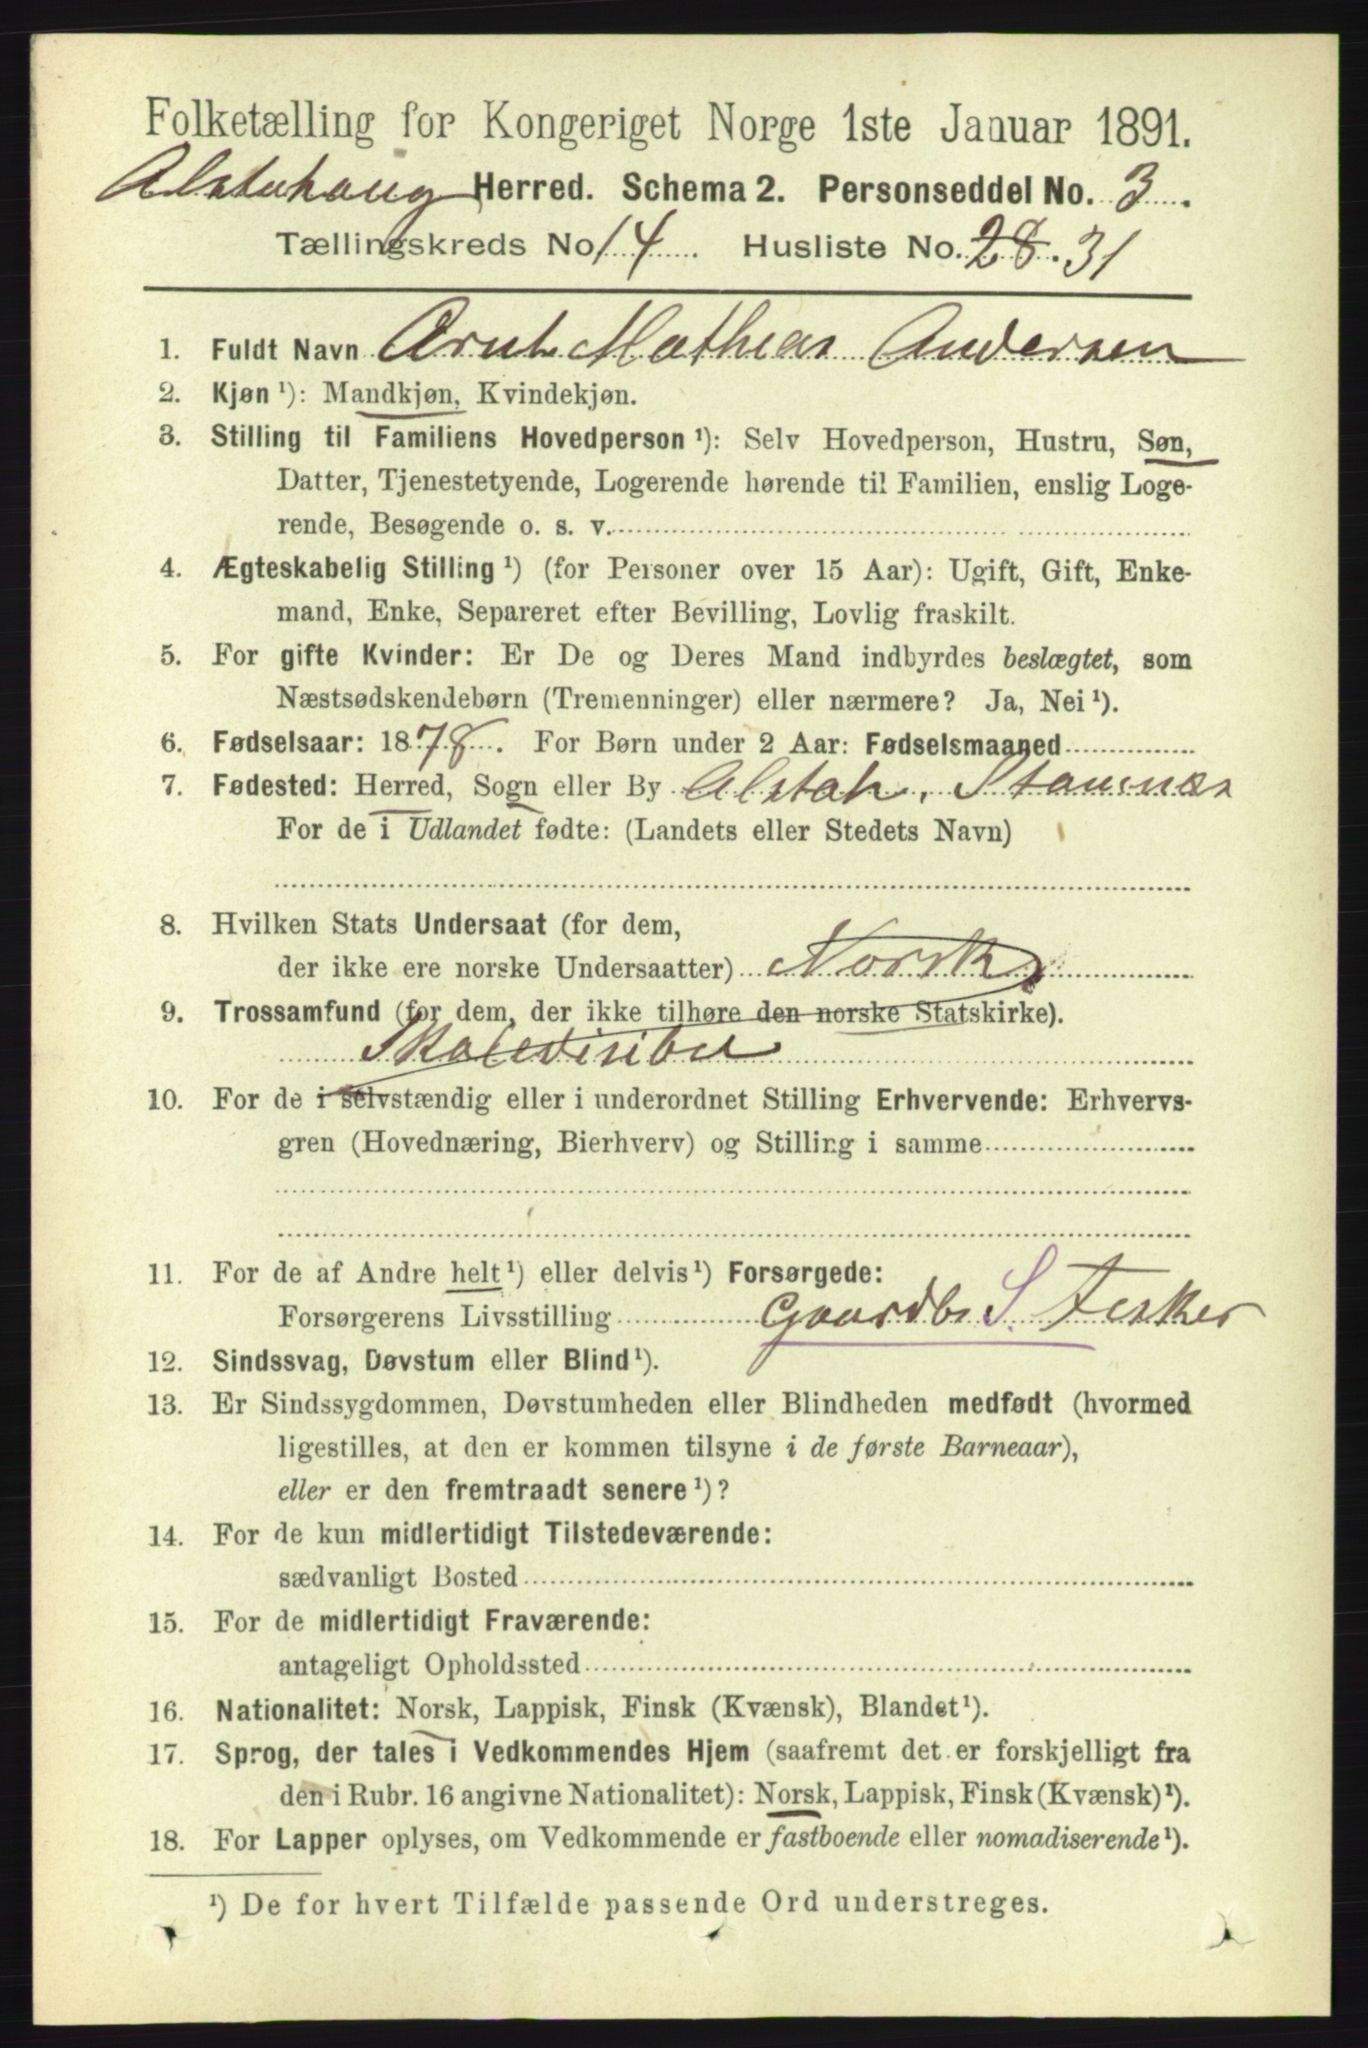 Folketælling for Kongeriget Norge 1ste Januar 1891.
Alstahaug Herred. Schema 2. Personseddel No. 3.
Tællingskreds No 14. Husliste No. 28. 31
1. Fuldt Navn Arnt Mathias Andersen
2. Kjøn ¹): Mandkjøn, Kvindekjøn.
3. Stilling til Familiens Hovedperson ¹): Selv Hovedperson, Hustru, Søn,
Datter, Tjenestetyende, Logerende hørende til Familien, enslig Loge-
rende, Besøgende o. s. v.
4. Ægteskabelig Stilling ¹) (for Personer over 15 Aar): Ugift, Gift, Enke-
mand, Enke, Separeret efter Bevilling, Lovlig fraskilt.
5. For gifte Kvinder: Er De og Deres Mand indbyrdes beslægtet, som
Næstsødskendebørn (Tremenninger) eller nærmere? Ja, Nei ¹).
6. Fødselsaar: 1878. For Børn under 2 Aar: Fødselsmaaned
7. Fødested: Herred, Sogn eller By Alstah. Stamnes
For de i Udlandet fødte: (Landets eller Stedets Navn)
8. Hvilken Stats Undersaat (for dem,
der ikke ere norske Undersaatter) Norsk
9. Trossamfund (for dem, der ikke tilhøre den norske Statskirke).
10. For de i selvstændig eller i underordnet Stilling Erhvervende: Erhvervs-
gren (Hovednæring, Bierhverv) og Stilling i samme
11. For de af Andre helt ¹) eller delvis ¹) Forsørgede:
Forsørgerens Livsstilling Gaardbr S. Fisker
12. Sindssvag, Døvstum eller Blind ¹).
13. Er Sindssygdommen, Døvstumheden eller Blindheden medfødt (hvormed
ligestilles, at den er kommen tilsyne i de første Barneaar),
eller er den fremtraadt senere ¹)?
14. For de kun midlertidigt Tilstedeværende:
sædvanligt Bosted
15. For de midlertidigt Fraværende:
antageligt Opholdssted
16. Nationalitet: Norsk, Lappisk, Finsk (Kvænsk), Blandet ¹).
17. Sprog, der tales i Vedkommendes Hjem (saafremt det er forskjelligt fra
den i Rubr. 16 angivne Nationalitet): Norsk, Lappisk, Finsk (Kvænsk) ¹).
18. For Lapper oplyses, om Vedkommende er fastboende eller nomadiserende ¹).
¹) De for hvert Tilfælde passende Ord understreges.